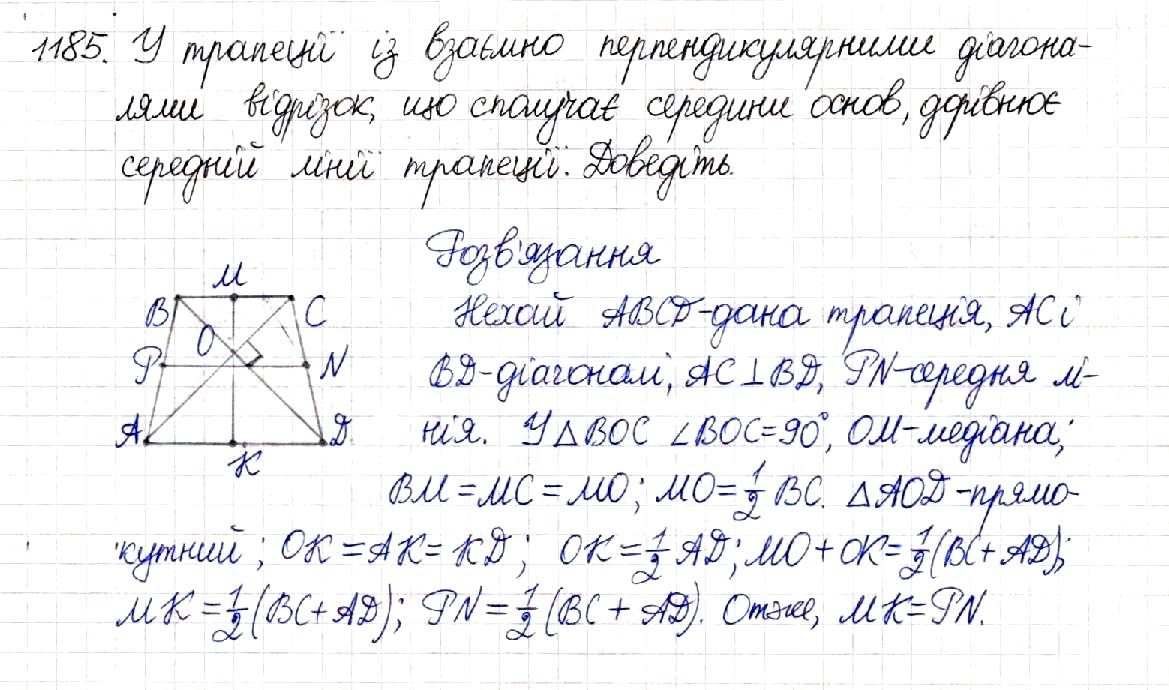 1185. У трапеції із взаємно перпендикулярними діагона-
лями відрізок, що сполучає середини основ, дорівнює
середній лінії трапеції. Доведіть.
Розв'язання
M
B C
O
P N
A D
K
Нехай ABCD-дана трапеція, AC і
BD-діагоналі, AC⊥BD, PN-середня лі-
нія. У △BOC ∠BOC=90°, OM-медіана;
BM=MC=MO; MO=1/2 BC. △AOD-прямо-
кутний; OK=AK=KD; OK=1/2 AD; MO+OK=1/2(BC+AD);
MK=1/2(BC+AD); PN=1/2(BC+AD). Отже, MK=PN.